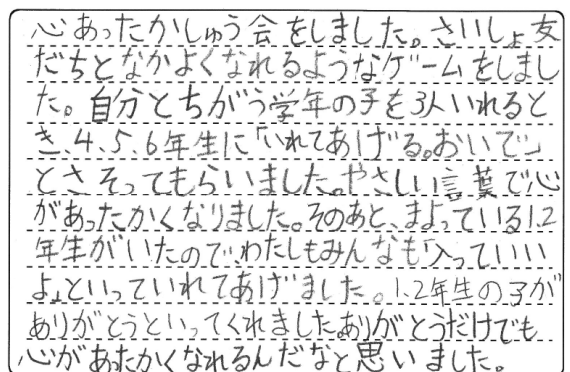 心あったかしゅう会をしました。さいしょ友
だちとなかよくなれるようなゲームをしまし
た。自分とちがう学年の子を3人いれると
き、4、5、6年生に「いれてあげる。おいで」
とさそってもらいました。やさしい言葉で心
があったかくなりました。そのあと、まよっている1、2
年生がいたので、わたしもみんなも「入っていい
よ」といっていれてあげました。1、2年生の子が
ありがとうといってくれました。ありがとうだけでも
心があたかくなれるんだなと思いました。